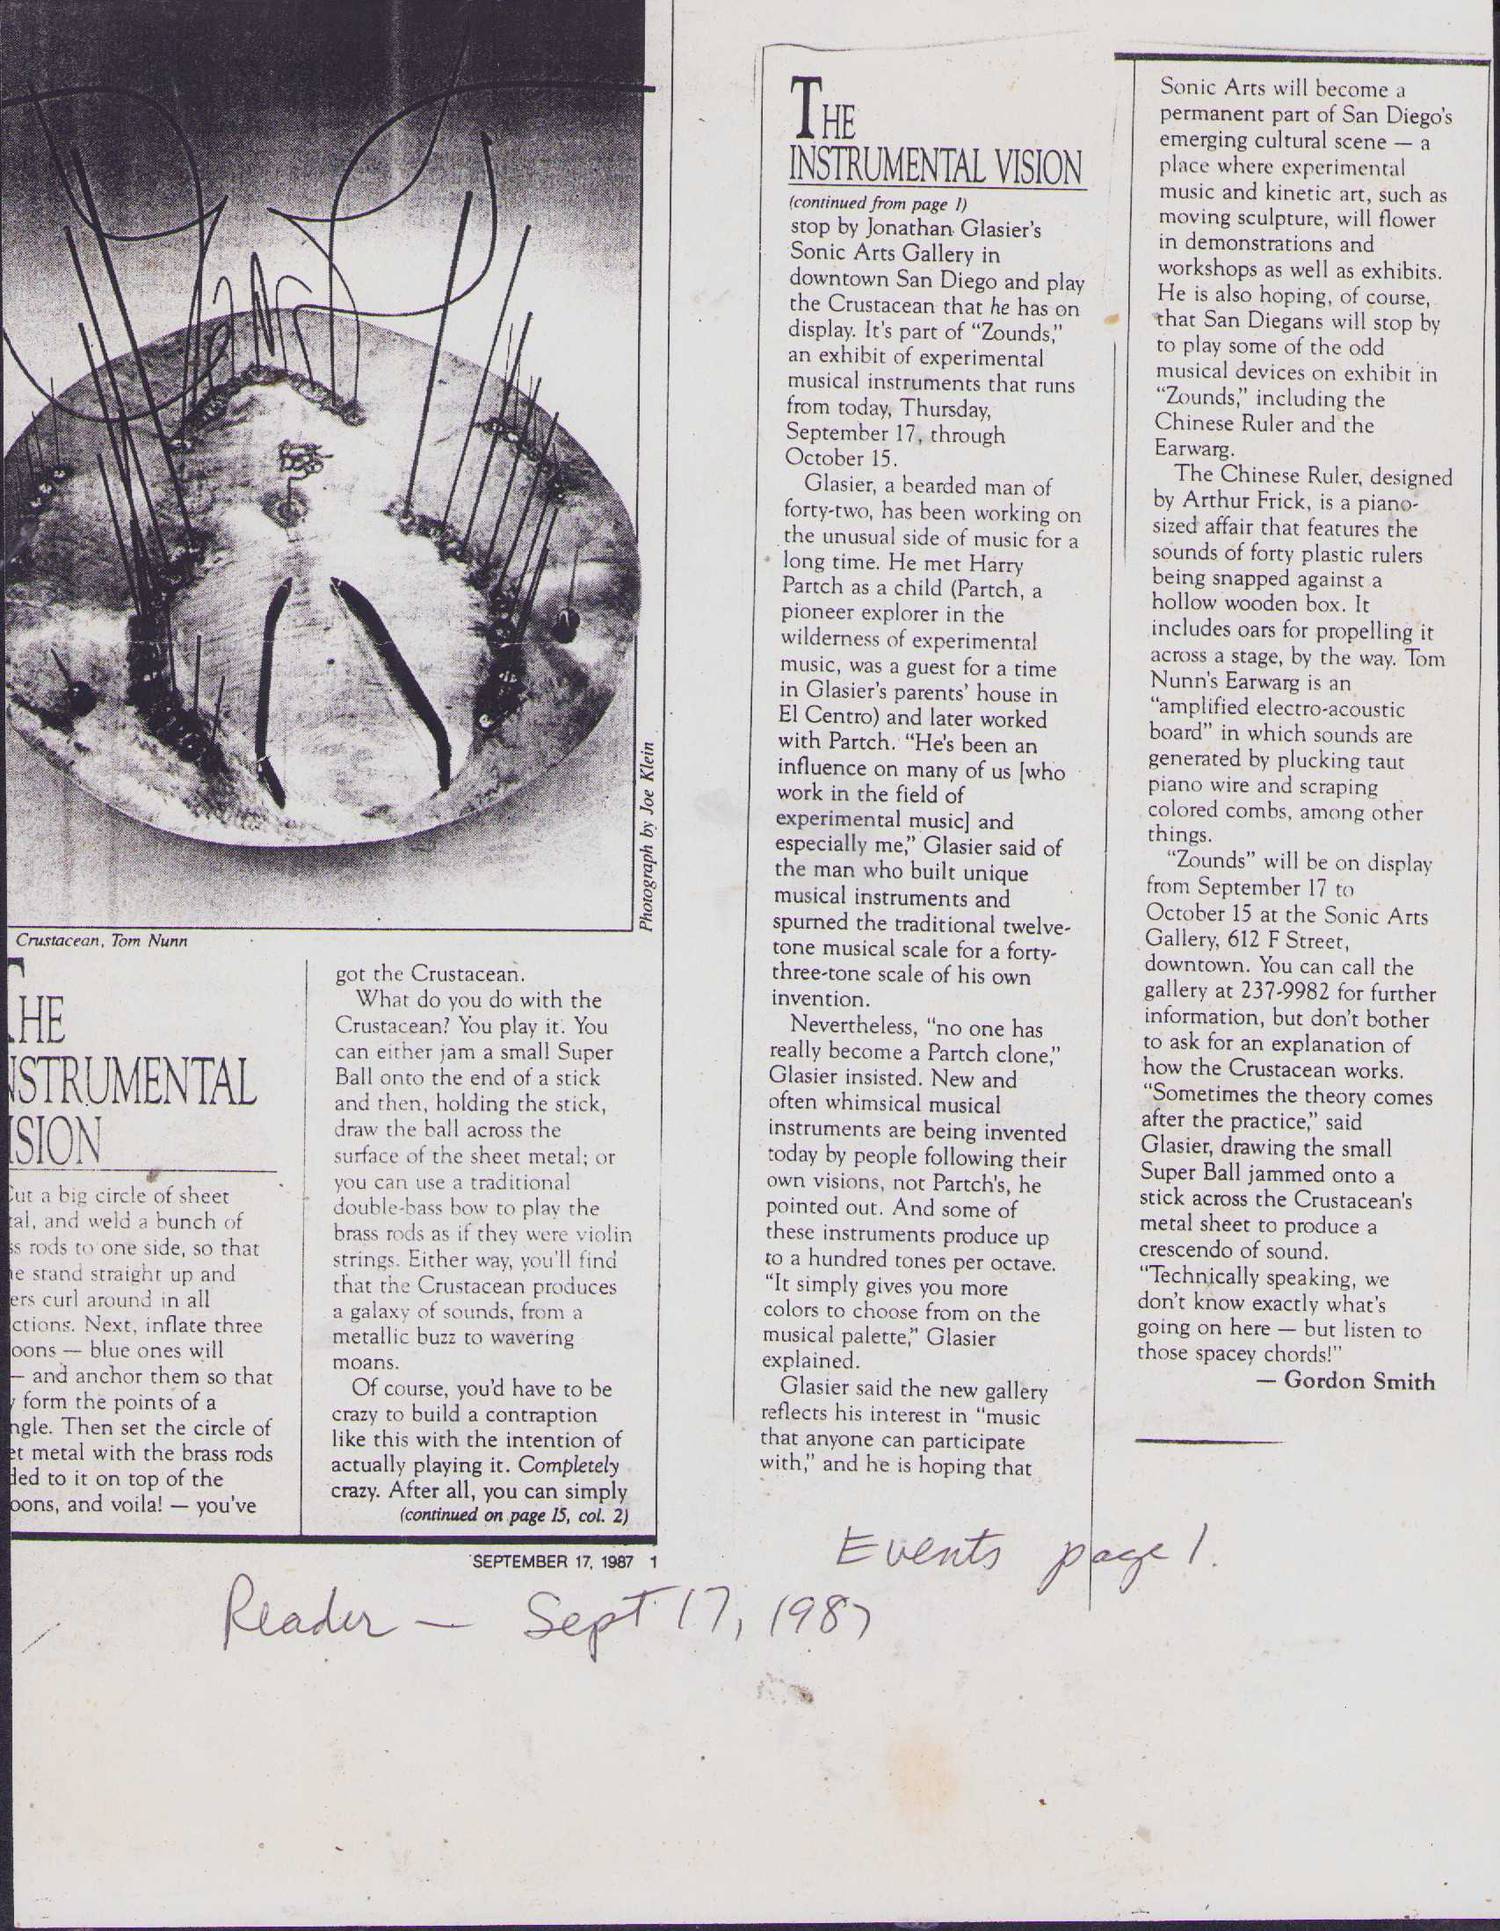 Photograph by Joe Klein
Crustacean, Tom Nunn
THE
NSTRUMENTAL
ISION
ut a big circle of sheet
al, and weld a bunch of
ss rods to one side, so that
e stand straight up and
ers curl around in all
ctions. Next, inflate three
oons — blue ones will
— and anchor them so that
y form the points of a
ngle. Then set the circle of
et metal with the brass rods
ded to it on top of the
oons, and voila! — you've
got the Crustacean.
What do you do with the
Crustacean? You play it. You
can either jam a small Super
Ball onto the end of a stick
and then, holding the stick,
draw the ball across the
surface of the sheet metal; or
you can use a traditional
double-bass bow to play the
brass rods as if they were violin
strings. Either way, you'll find
that the Crustacean produces
a galaxy of sounds, from a
metallic buzz to wavering
moans.
Of course, you'd have to be
crazy to build a contraption
like this with the intention of
actually playing it. Completely
crazy. After all, you can simply
(continued on page 15, col. 2)
SEPTEMBER 17, 1987 1
THE
INSTRUMENTAL VISION
(continued from page 1)
stop by Jonathan Glasier's
Sonic Arts Gallery in
downtown San Diego and play
the Crustacean that he has on
display. It's part of “Zounds,”
an exhibit of experimental
musical instruments that runs
from today, Thursday,
September 17, through
October 15.
Glasier, a bearded man of
forty-two, has been working on
the unusual side of music for a
long time. He met Harry
Partch as a child (Partch, a
pioneer explorer in the
wilderness of experimental
music, was a guest for a time
in Glasier's parents' house in
El Centro) and later worked
with Partch. “He's been an
influence on many of us [who
work in the field of
experimental music] and
especially me,” Glasier said of
the man who built unique
musical instruments and
spurned the traditional twelve-
tone musical scale for a forty-
three-tone scale of his own
invention.
Nevertheless, “no one has
really become a Partch clone,”
Glasier insisted. New and
often whimsical musical
instruments are being invented
today by people following their
own visions, not Partch's, he
pointed out. And some of
these instruments produce up
to a hundred tones per octave.
“It simply gives you more
colors to choose from on the
musical palette,” Glasier
explained.
Glasier said the new gallery
reflects his interest in “music
that anyone can participate
with,” and he is hoping that
Sonic Arts will become a
permanent part of San Diego's
emerging cultural scene — a
place where experimental
music and kinetic art, such as
moving sculpture, will flower
in demonstrations and
workshops as well as exhibits.
He is also hoping, of course,
that San Diegans will stop by
to play some of the odd
musical devices on exhibit in
“Zounds,” including the
Chinese Ruler and the
Earwarg.
The Chinese Ruler, designed
by Arthur Frick, is a piano-
sized affair that features the
sounds of forty plastic rulers
being snapped against a
hollow wooden box. It
includes oars for propelling it
across a stage, by the way. Tom
Nunn's Earwarg is an
“amplified electro-acoustic
board” in which sounds are
generated by plucking taut
piano wire and scraping
colored combs, among other
things.
“Zounds” will be on display
from September 17 to
October 15 at the Sonic Arts
Gallery, 612 F Street,
downtown. You can call the
gallery at 237-9982 for further
information, but don't bother
to ask for an explanation of
how the Crustacean works.
“Sometimes the theory comes
after the practice,” said
Glasier, drawing the small
Super Ball jammed onto a
stick across the Crustacean's
metal sheet to produce a
crescendo of sound.
“Technically speaking, we
don't know exactly what's
going on here — but listen to
those spacey chords!”
— Gordon Smith
Events page 1.
Reader — Sept 17, 1987